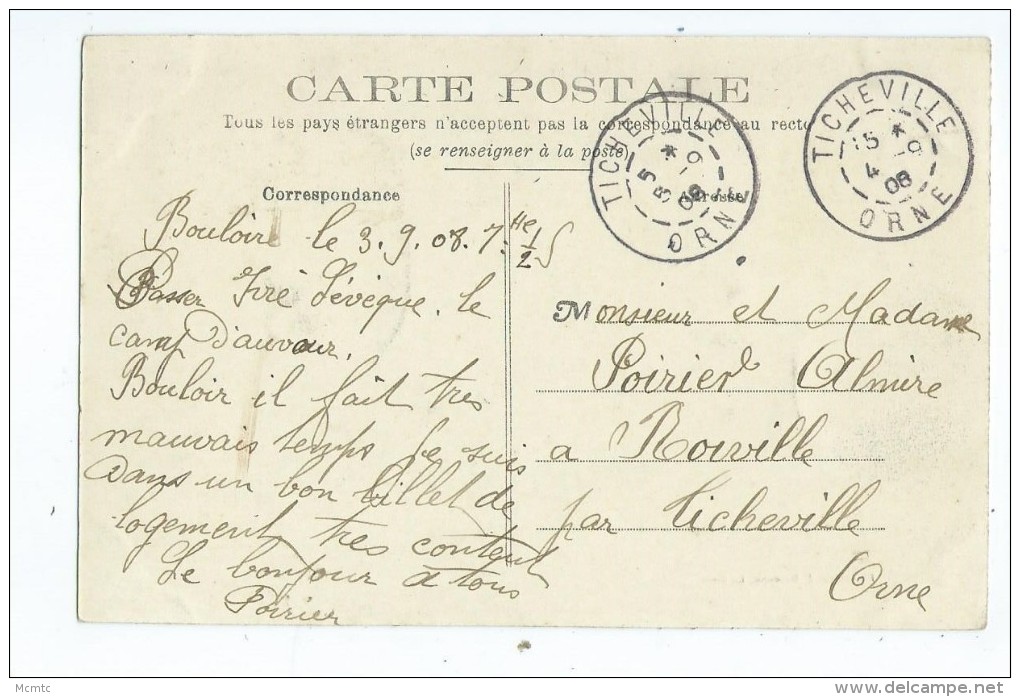 CARTE POSTALE
Tous les pays étrangers n'acceptent pas la correspondance au recto
(se renseigner à la poste)
Correspondance
Adresse
TICHEVILLE
5 *
5 -9
08
ORNE
TICHEVILLE
15 *
4 -9
08
ORNE
Bouloire le 3.9.08. 7 He 1/2 S
Passer Ivré Lévèque, le
camp D'auvour.
Bouloir il fait tres
mauvais temps je suis
Dans un bon billet de
logement tres content
Le bonjour a tous
Poirier
Monsieur et Madame
Poirier Almire
a Roiville
par ticheville
Orne
Mcmtc
delcampe.net